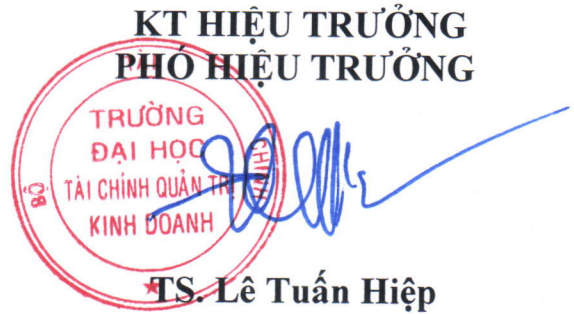 KT HIỆU TRƯỞNG
PHÓ HIỆU TRƯỞNG
BỘ TÀI CHÍNH
TRƯỜNG
ĐẠI HỌC
TÀI CHÍNH QUẢN TRỊ
KINH DOANH
TS. Lê Tuấn Hiệp